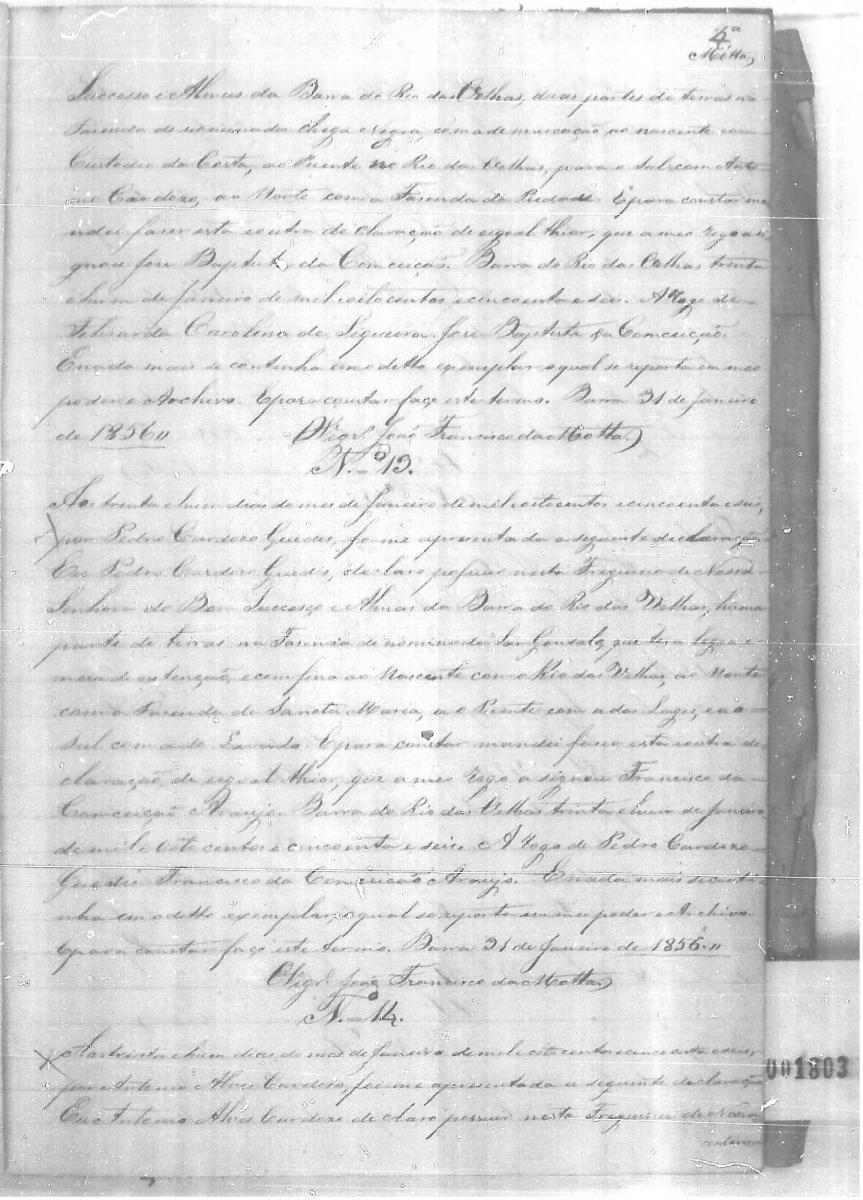 4ª
Motta
Successo e Almas da Barra do Rio das Velhas, duas partes de terras na
Fasenda denominada Chega e Negra, com a demarcação ao nascente com
Custodio da Costa, ao Puente no Rio das Velhas, para o Sul com Anto
nio Cardozo, ao Norte com a Fasenda da Piedade. E para constar ma
ndei faser esta e outra declaração de egoal thior, que a meo rogo assi
gnou Jose Baptista da Comceição. Barra do Rio das Velhas trenta
e hum de Janeiro de mil oito centos e cincoenta e seis. A Rogo de
Carolina de Siqueira Jose Baptista da Comceição.
E nada mais se continha em o ditto exemplar o qual se reporta em meo
poder e Archivo. E para constar faço este termo. Barra 31 de Janeiro
de 1856 ,,
O Vigrº João Francisco da Motta
N.º 13.
Aos trenta e hum dias do mes de Janeiro de mil oito centos e cincoenta e seis,
por Pedro Cardozo Guedes, foi me apresentada a seguinte declaração
Eu Pedro Cardozo Guedes, declaro possuir nesta Freguesia de Nossa
Senhora do Bom Successo e Almas da Barra do Rio das Velhas, huma
parte de terras na Fasenda denominada San Gonsalo, que tera legoa e
meia de extenção, e comfina ao Nascente com o Rio das Velhas, ao Norte
com a Fasenda de Sancta Maria, ao Puente com a das Lages, e ao
Sul com a do . E para constar mandei faser esta e outra de
claração, de egoal thior, que a meo rogo a signou Francisco da
Comceição Araujo. Barra do Rio das Velhas trinta e hum de Janeiro
de mil e oito centos e cincoenta e seis. A Rogo de Pedro Cardozo
Guedes Francisco da Comceição Araujo. E nada mais se conti
nha em o ditto exemplar, o qual se reporta em meo poder e Archivo.
E para constar faço este termo. Barra 31 de Janeiro de 1856. ,,
O Vigrº João Francisco da Motta
N.º 14.
Aos trinta e hum dias do mes de Janeiro de mil e oito centos e cincoenta e seis,
por Antonio Alves Cardozo, foi me apresentada a seguinte declaração
Eu Antonio Alves Cardozo declaro possuir nesta Freguesia de Nossa
001803